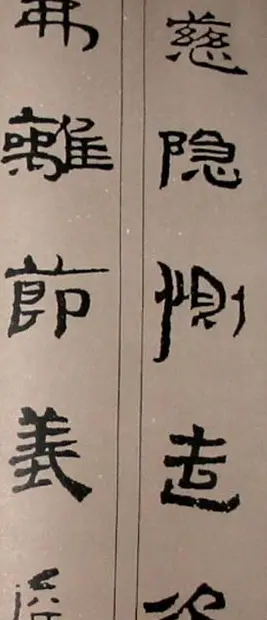 慈隐惻造次
弗離節義